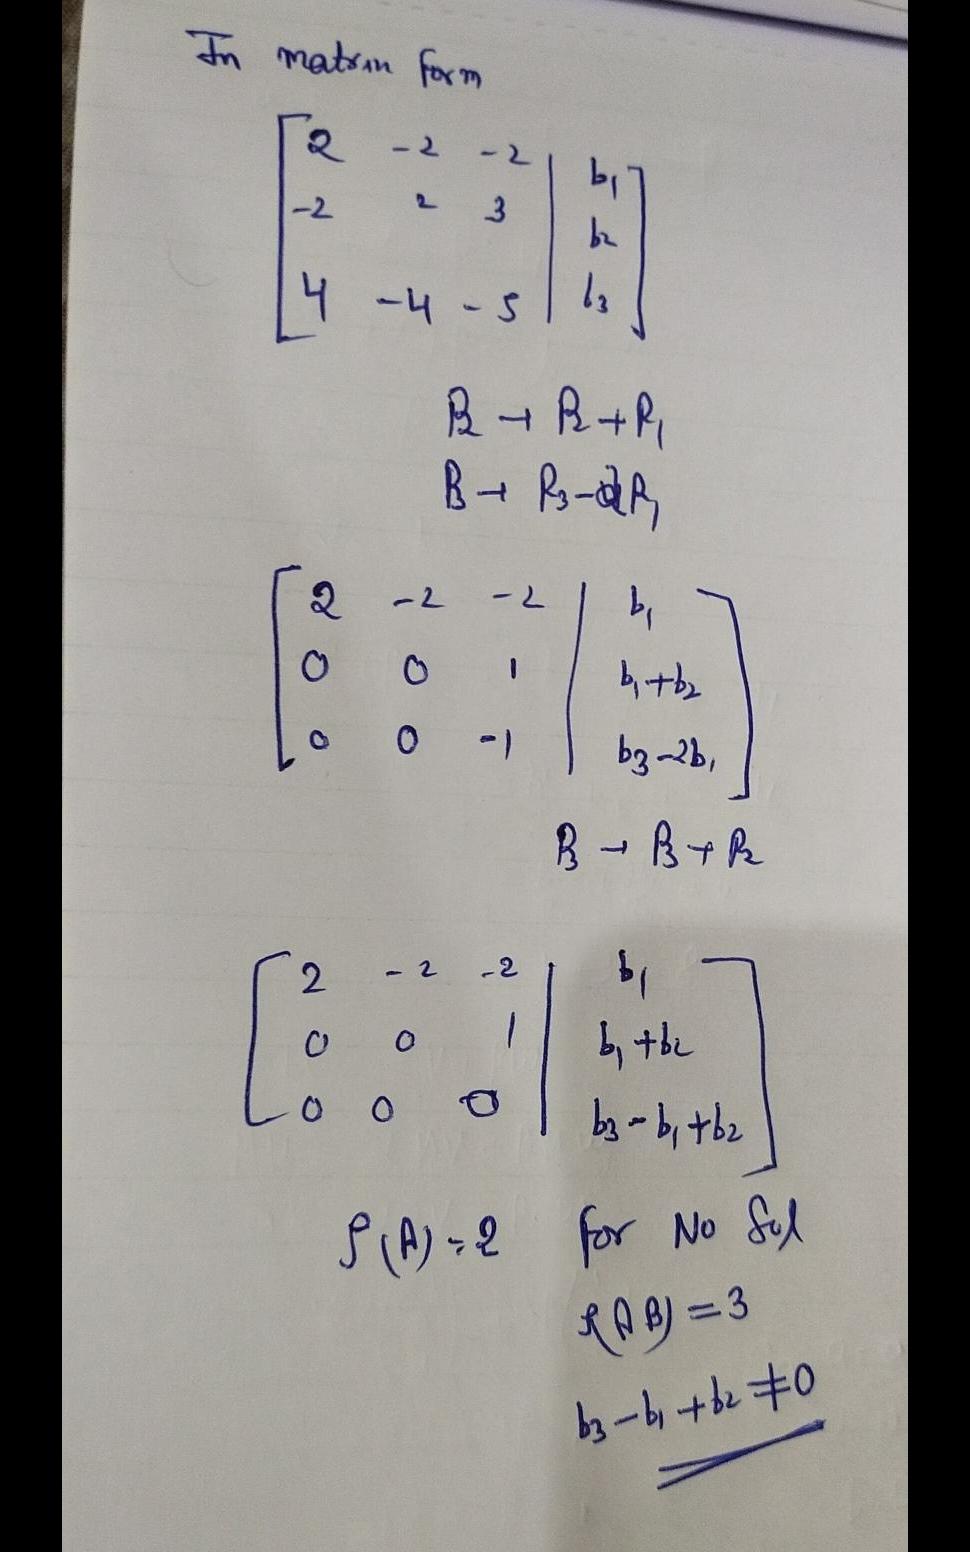 In matrix form
2 -2 -2 | b₁
-2 2 3 | b₂
4 -4 -5 | b₃
R₂ → R₂ + R₁
R₃ → R₃ - 2R₁
2 -2 -2 | b₁
0 0 1 | b₁+b₂
0 0 -1 | b₃-2b₁
R₃ → R₃ + R₂
2 -2 -2 | b₁
0 0 1 | b₁+b₂
0 0 0 | b₃-b₁+b₂
ρ(A) = 2 for No Sol
ρ(AB) = 3
b₃-b₁+b₂ ≠ 0